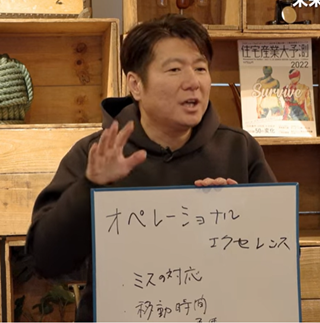 未来
住宅産業大予測
2022
Survive
オペレーショナル
エクセレンス
・ミスの対応
・移動時間